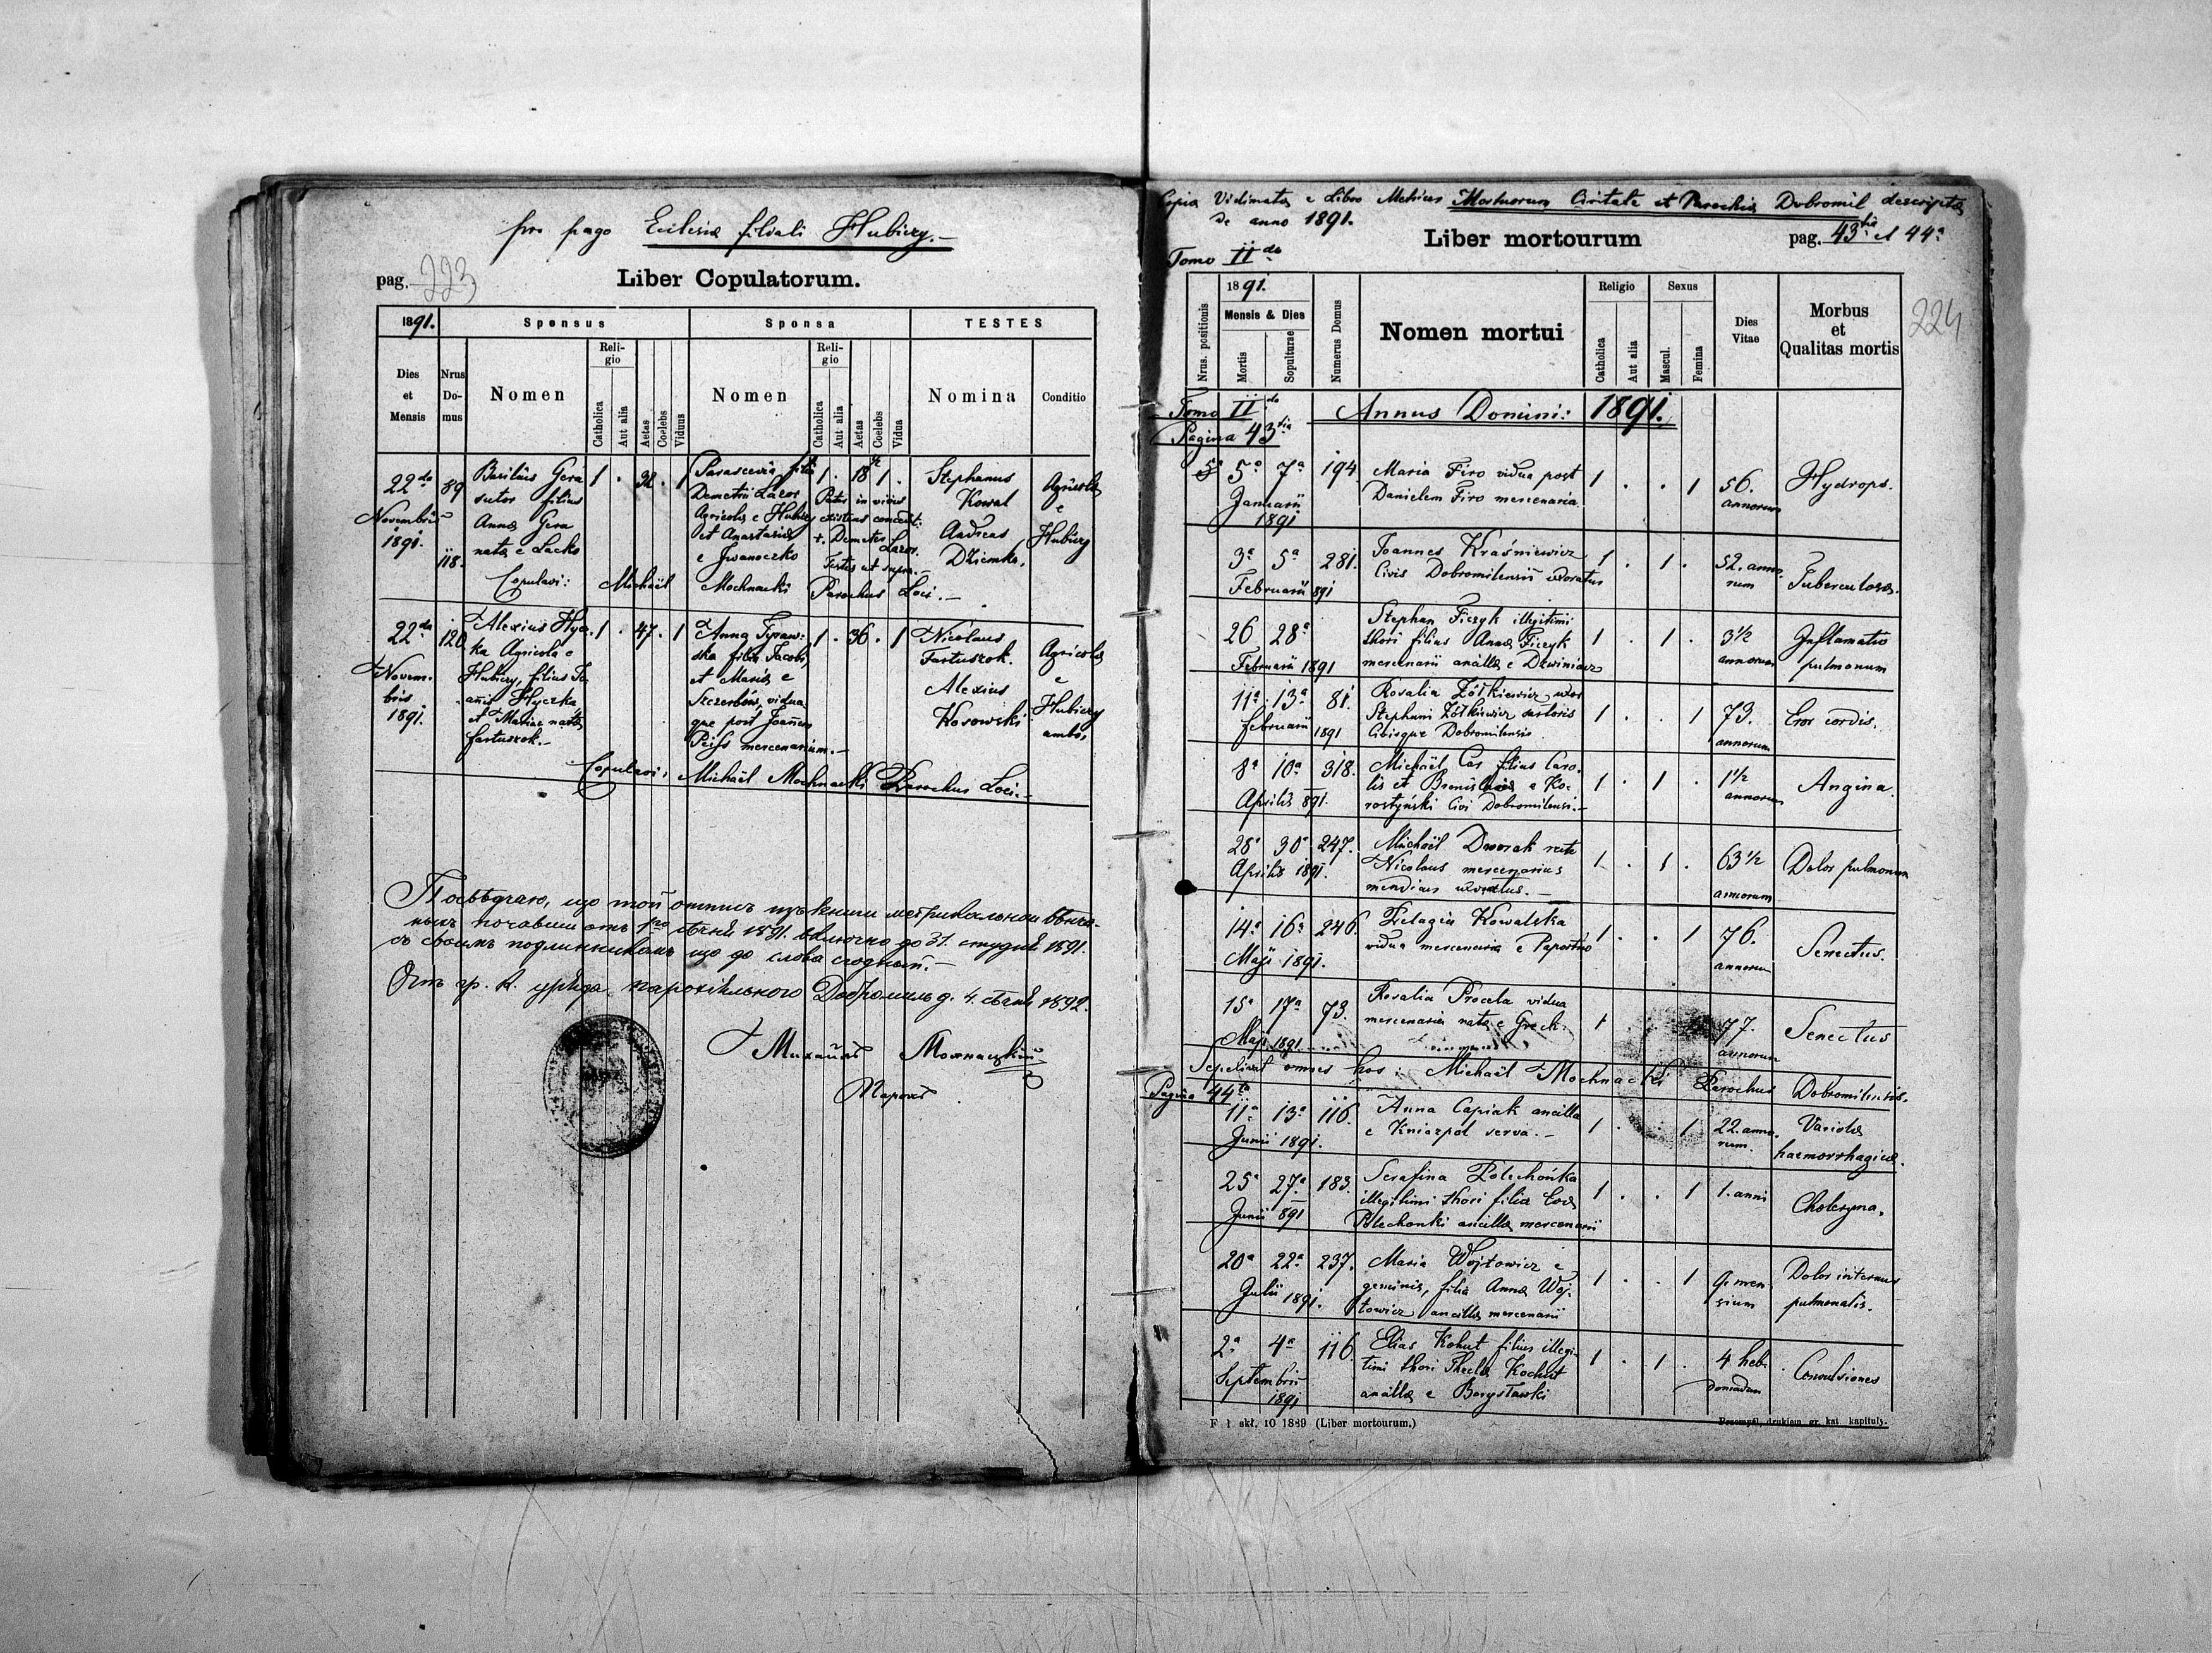 pro pago Eclesiæ filiali Hubiczy.—
pag. 223
Liber Copulatorum.
1891.
Sponsus
Sponsa
TESTES
Dies et Mensis
Nrus Domus
Nomen
Religio
Catholica
Aut alia
Aetas
Coelebs
Viduus
Nomen
Religio
Catholica
Aut alia
Aetas
Coelebs
Vidua
Nomina
Conditio
22da Novembris 1891.
89
118.
Basilius Gera
sutor filius
Annæ Gera
nata e Lacko
1 . 32 . 1
Parascevia filia
Demetrii Lazor
Agricolæ e Hubicy
et Anastasiæ
e Iwanoczko
1 . 18 1/2 1 .
Pater in vivis
existens concedit:
+. Demeter Lazor.
Testes ut supra.—
Stephanus
Kowal
Andreas
Dziemka.
Agricolæ
e
Hubiczy
Copulavi: Michaël Mochnacki Parochus Loci.—
22da Novembris 1891.
120
Alexius Hycz-
ka Agricola e
Hubicy, filius Jo-
annis Hyczka
et Mariæ nata
Fartuszok.—
1 . 47 . 1
Anna Tyraw-
ska filia Jacobi,
et Mariæ e
Szczerbów, vidua
que post Joannem
Peifs mercenarium.—
1 . 36 . 1
Nicolaus
Fartuszok.
Alexius
Kosowski
Agricolæ
e
Hubiczy
ambo,
Copulavi: Michaël Mochnacki Parochus Loci.—
Посвѣдчаю, що той отпись изъ книги метрикальнои вѣнча-
ныхъ почавши отъ 1го сѣчня 1891. включно до 31. студня 1891.
съ своимъ подлинникомъ що до слова сходный.—
Отъ гр. к. уряда парохіяльного Добромиль д. 4. сѣчня 1892.
Михаилъ Мохнацкій
Парохъ
Copia Vidimata e Libro Metrices Mortuorum Civitate et Parochia Dobromil descripta
de anno 1891.
Liber mortourum
pag. 43tia et 44a
Tomo IIdo
224
Nrus. positionis
1891.
Mensis & Dies
Mortis
Sepulturae
Numerus Domus
Nomen mortui
Religio
Catholica
Aut alia
Sexus
Mascul.
Femina
Dies Vitae
Morbus
et
Qualitas mortis
Tomo IIdo
Annus Domini: 1891.
Pagina 43tia
5a 7a 194
Januarii 1891
Maria Firo vidua post
Danielem Firo mercenaria
1 . . 1
56. annorum
Hydrops.
3a 5a 281.
Februarii 891
Joannes Kraśniewicz
Civis Dobromilensis uxoratus
1 . 1 .
52. annorum
Tuberculosa.
26 28a
Februarii 1891
Stephan Ficzyk illegitimi
thori filius Annæ Ficzyk
mercenarii ancillæ e Dzwiniacz
1 . 1 .
3 1/2 annorum
Inflamatio
pulmonum
11a 13a 81.
Februarii 1891
Rosalia Żółkiewicz uxor
Stephani Żółkiewicz sartoris
Civisque Dobromilensis.
1 . . 1
73. annorum
Cros cordis.
8a 10a 318.
Aprilis 891.
Michaël Cas filius Caro-
lis et Bronislaviæ e Ko-
rostyński Civi Dobromilensi.—
1 . 1 .
1 1/2 annorum
Angina.
28a 30a 247.
Aprilis 1891.
Michaël Dworak recte
Nicolaus mercenarius
mendicus uxoratus.—
1 . 1 .
63 1/2 annorum
Dolor pulmonum
14a 16a 246.
Maji 1891.
Pelagia Kowalska
vidua mercenaria e Paportno
1 . . 1
76. annorum
Senectus.
15a 17a 73.
Maji 1891
Rosalia Procela vidua
mercenaria nata e Greck.
1
77. annorum
Senectus
Sepelivit omnes hos: Michaël Mochnacki Parochus Dobromilensis.
Pagina 44ta
11a 13a 116.
Junii 1891.
Anna Capiak ancilla
e Kniazpol serva.—
1 . . 1
22. annorum.
Variola
haemorrhagica.
25a 27a 183.
Junii 891
Serafina Polechońka
illegitimi thori filia Evæ
Polechonki ancillæ mercenarii
1 . . 1
1. anni
Choleryna.
20a 22a 237.
Julii 1891.
Maria Wojtowicz e
geminis, filia Annæ Woj-
towicz ancillæ mercenarii
1 . . 1
9. mensium
Dolor internus
pulmonalis.
2a 4a 116.
Septembris 1891
Elias Kohut filius illegi-
timi thori Theclæ Kochut
ancillæ e Borysławki
1 . 1 .
4 hebdomadum
Convulsiones
F 1 skł. 10 1889 (Liber mortourum.)
Przemyśl, drukiem gr. kat. kapituly.